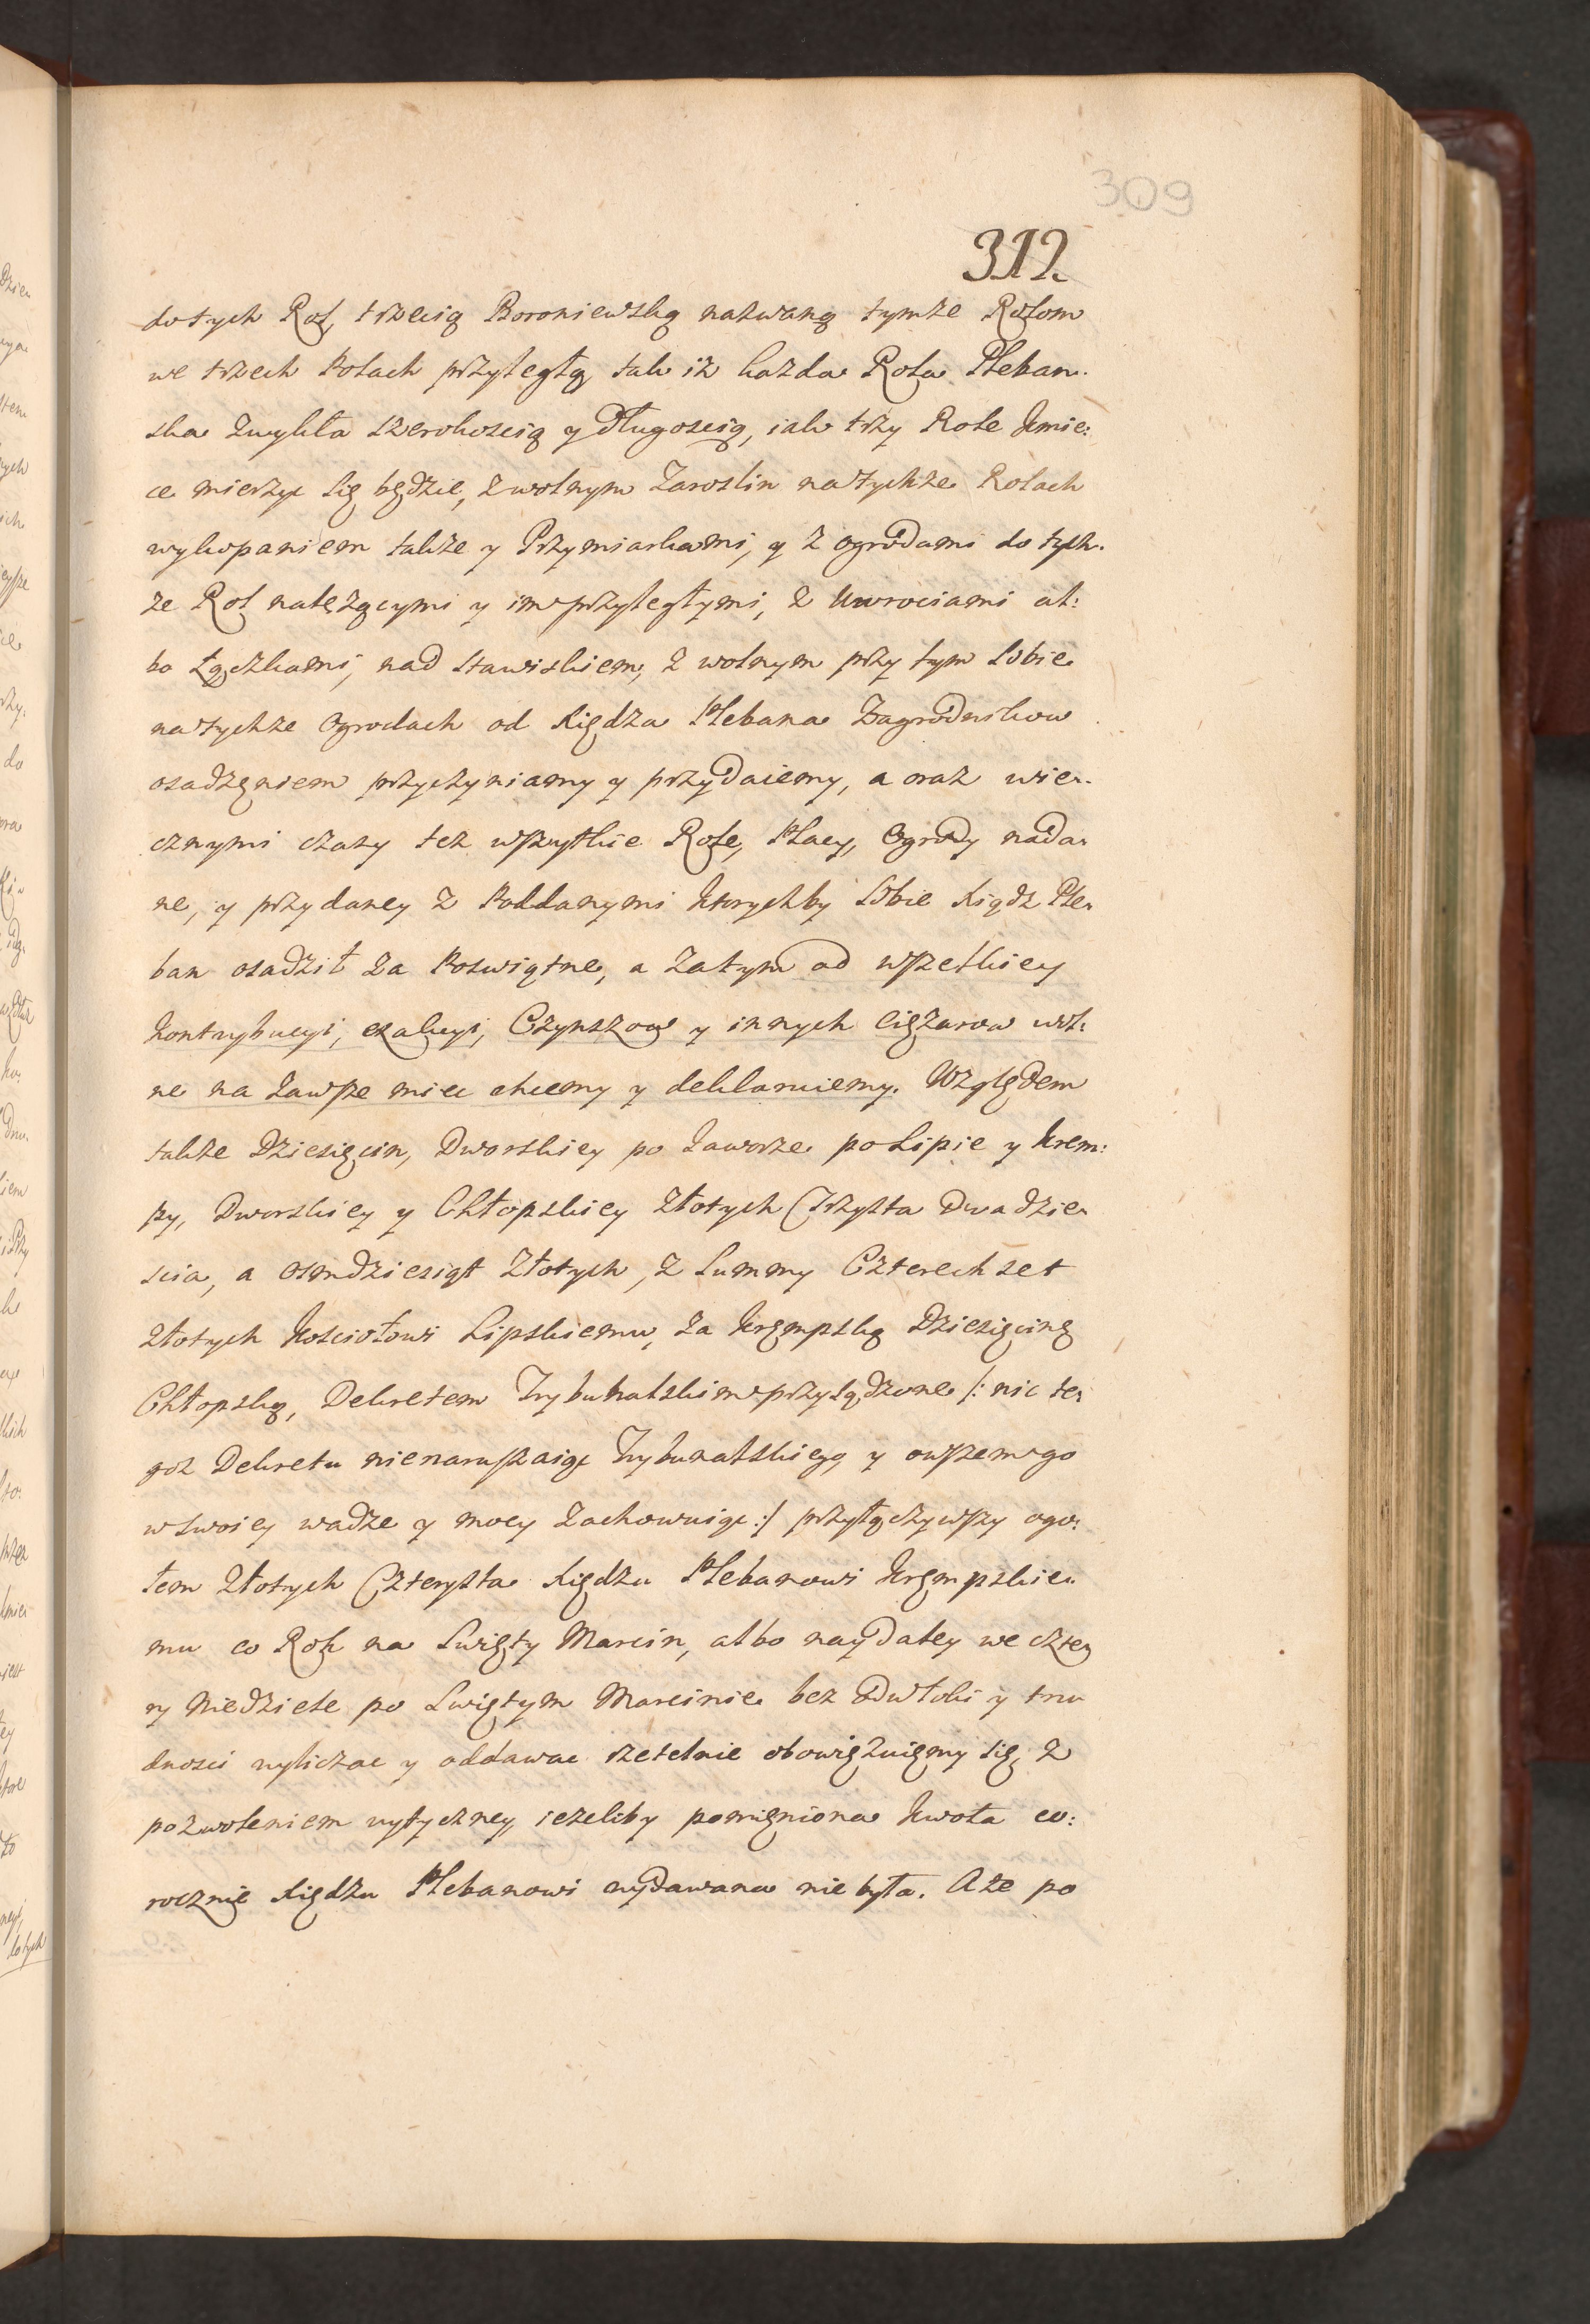 309
312.
do tych Rol, trzecią Boroniewską nazwaną tymże Rolom
we trzech Polach przyległą tak iż każda Rola Pleban.
ska zwykła szerokoscią y Długoscią, iak trzy Role Kmie:
ce mierzyc się będzie, z wolnym Zaroslin na tychże Rolach
wykopaniem także y Przymiarkami, y z ogrodami do tych.
że Rol należącymi y im przyległymi, z Uwrociami al:
bo Łączkami, nad stawiskiem, z wolnym przy tym sobie
na tychże Ogrodach od Xiędza Plebana Zagrodnikow
osadzeniem przyczyniamy y przydaiemy, a oraz wie-
cznymi czasy tez wszytkie Role, Place, Ogrody nada-
ne, y przydaney z Poddanymi ktorychby sobie Xiądz Ple-
ban osadził za Poswiątne, a zatym od wszelkiey
kontrybucyi, exakcyi, Czynszow y innych ciężarow wol:
ne na zawsze miec chcemy y deklaruiemy. Względem
także Dziesięcin, Dworskiey po Jaworze po Lipie y Krem:
py, Dworskiey y Chłopskiey Złotych Trzysta Dwadzie-
scia, a osmdziesiąt Złotych, z Summy Czterechset
Złotych Kosciołowi Lipskiemu, za Krempską Dziesięcinę
Chłopską, Dekretem Trybunalskim przysądzone /: nic te:
goż Dekretu nienaruszaiąc Trybunalskiego y owszem go
w swoiey wadze y mocy zachowuiąc :/ przyłączywszy ogo:
łem Złotych Czterysta Xiędzu Plebanowi Krempskie-
mu co Rok na Swięty Marcin, albo naydaley we czte-
ry Niedziele po Swiętym Marcinie bez odwłoki y tru
dnosci wyliczac y oddawac rzetelnie obowięzuiemy się, z
pozwoleniem wytyczney, ieżeliby pomieniona kwota co:
rocznie Xiędzu Plebanowi wydawana nie była. A że po